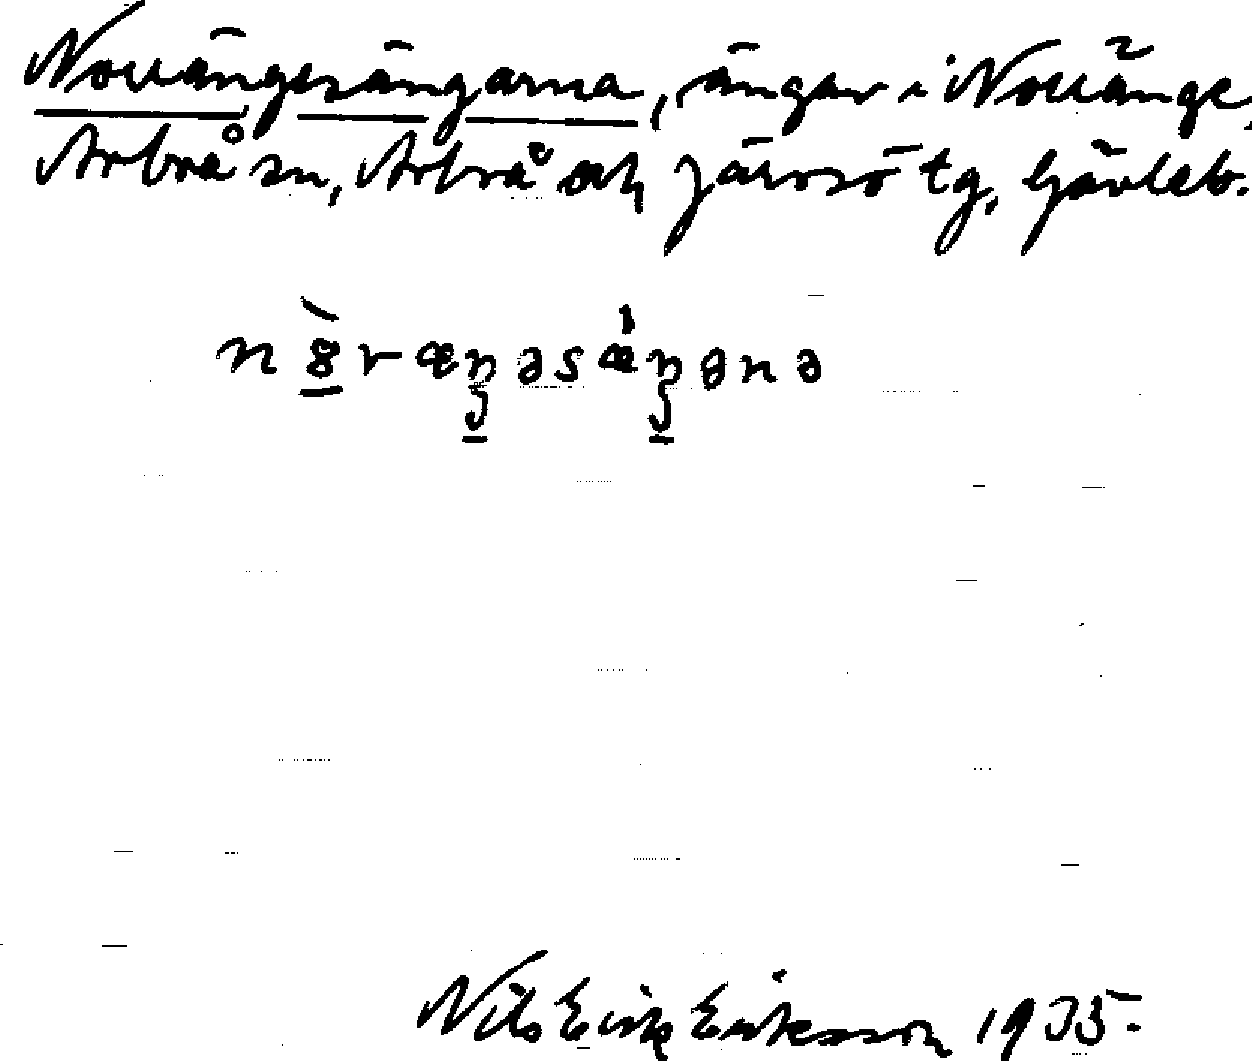 Norrängesängarna, ängar i Norränge,
Arbrå sn, Arbrå och Järvsö tg, Gävleb.
Nils Erik Eriksson 1935.